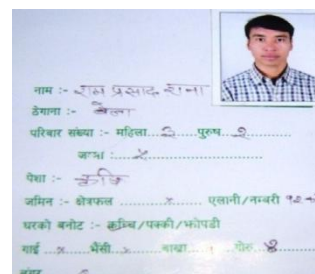 नाम :- राम प्रसाद राना
ठेगाना :- बेला
परिवार संख्या :- महिला...3 पुरुष...2
जम्मा :......५
पेशा :- कृषि
जमिन :- क्षेत्रफल ........ एलानी/नम्बरी
घरको बनोट :- कच्चि/पक्की/झोपडी
गाई ..x.. भैंसी ..x.. बाखा ... गोरु